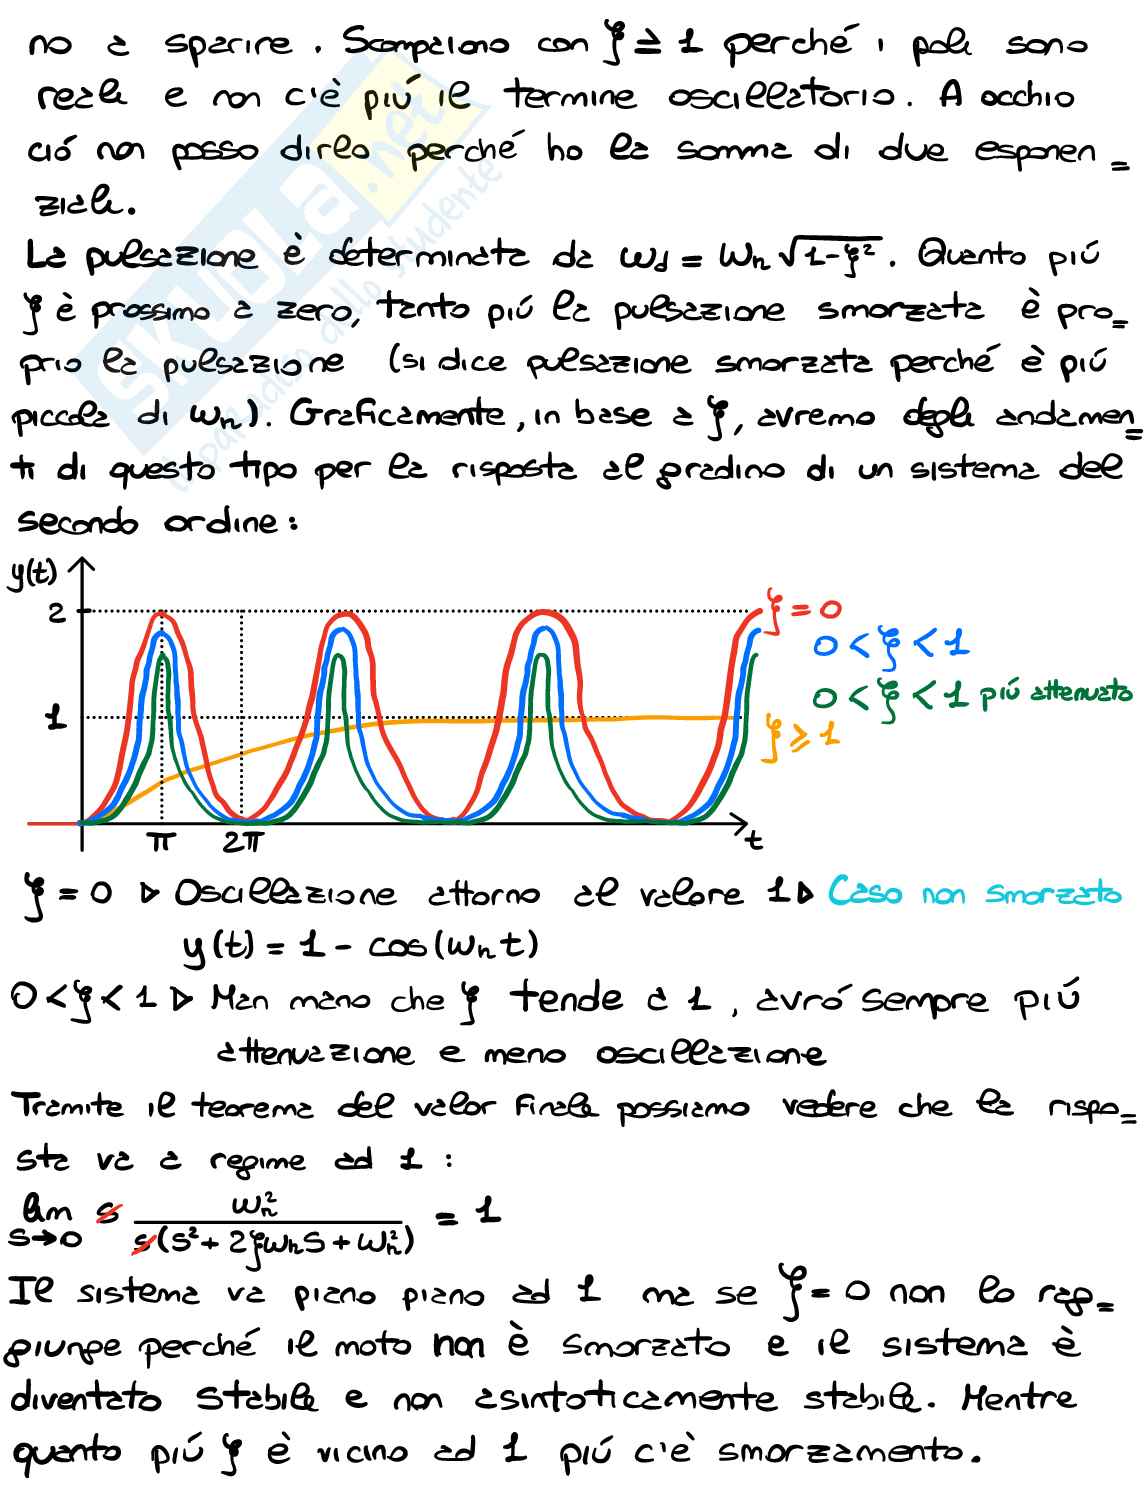 no a sparire. Scompaiono con ξ ≥ 1 perché i poli sono
reali e non c'è piú il termine oscillatorio. A occhio
ció non posso dirlo perché ho la somma di due esponen =
ziali.
La pulsazione è determinata da ωd = ωn√1-ξ². Quanto piú
ξ è prossimo a zero, tanto piú la pulsazione smorzata è pro=
prio la pulsazione (si dice pulsazione smorzata perché è piú
piccola di ωn). Graficamente, in base a ξ, avremo degli andamen=
ti di questo tipo per la risposta al gradino di un sistema del
secondo ordine:
y(t)
2
ξ = 0
0 < ξ < 1
0 < ξ < 1 piú attenuato
1
ξ ≥ 1
π 2π t
ξ = 0 ▷ Oscillazione attorno al valore 1 ▷ Caso non smorzato
y(t) = 1 - cos(ωn t)
0 < ξ < 1 ▷ Man mano che ξ tende a 1, avró sempre piú
attenuazione e meno oscillazione
Tramite il teorema del valor finale possiamo vedere che la rispo=
sta va a regime ad 1 :
lim s→0 s ωn² / s(s² + 2ξωns + ωn²) = 1
Il sistema va piano piano ad 1 ma se ξ = 0 non lo rag=
giunge perché il moto non è smorzato e il sistema è
diventato stabile e non asintoticamente stabile. Mentre
quanto piú ξ è vicino ad 1 piú c'è smorzamento.
SKUOLA.net
il paradiso dello studente